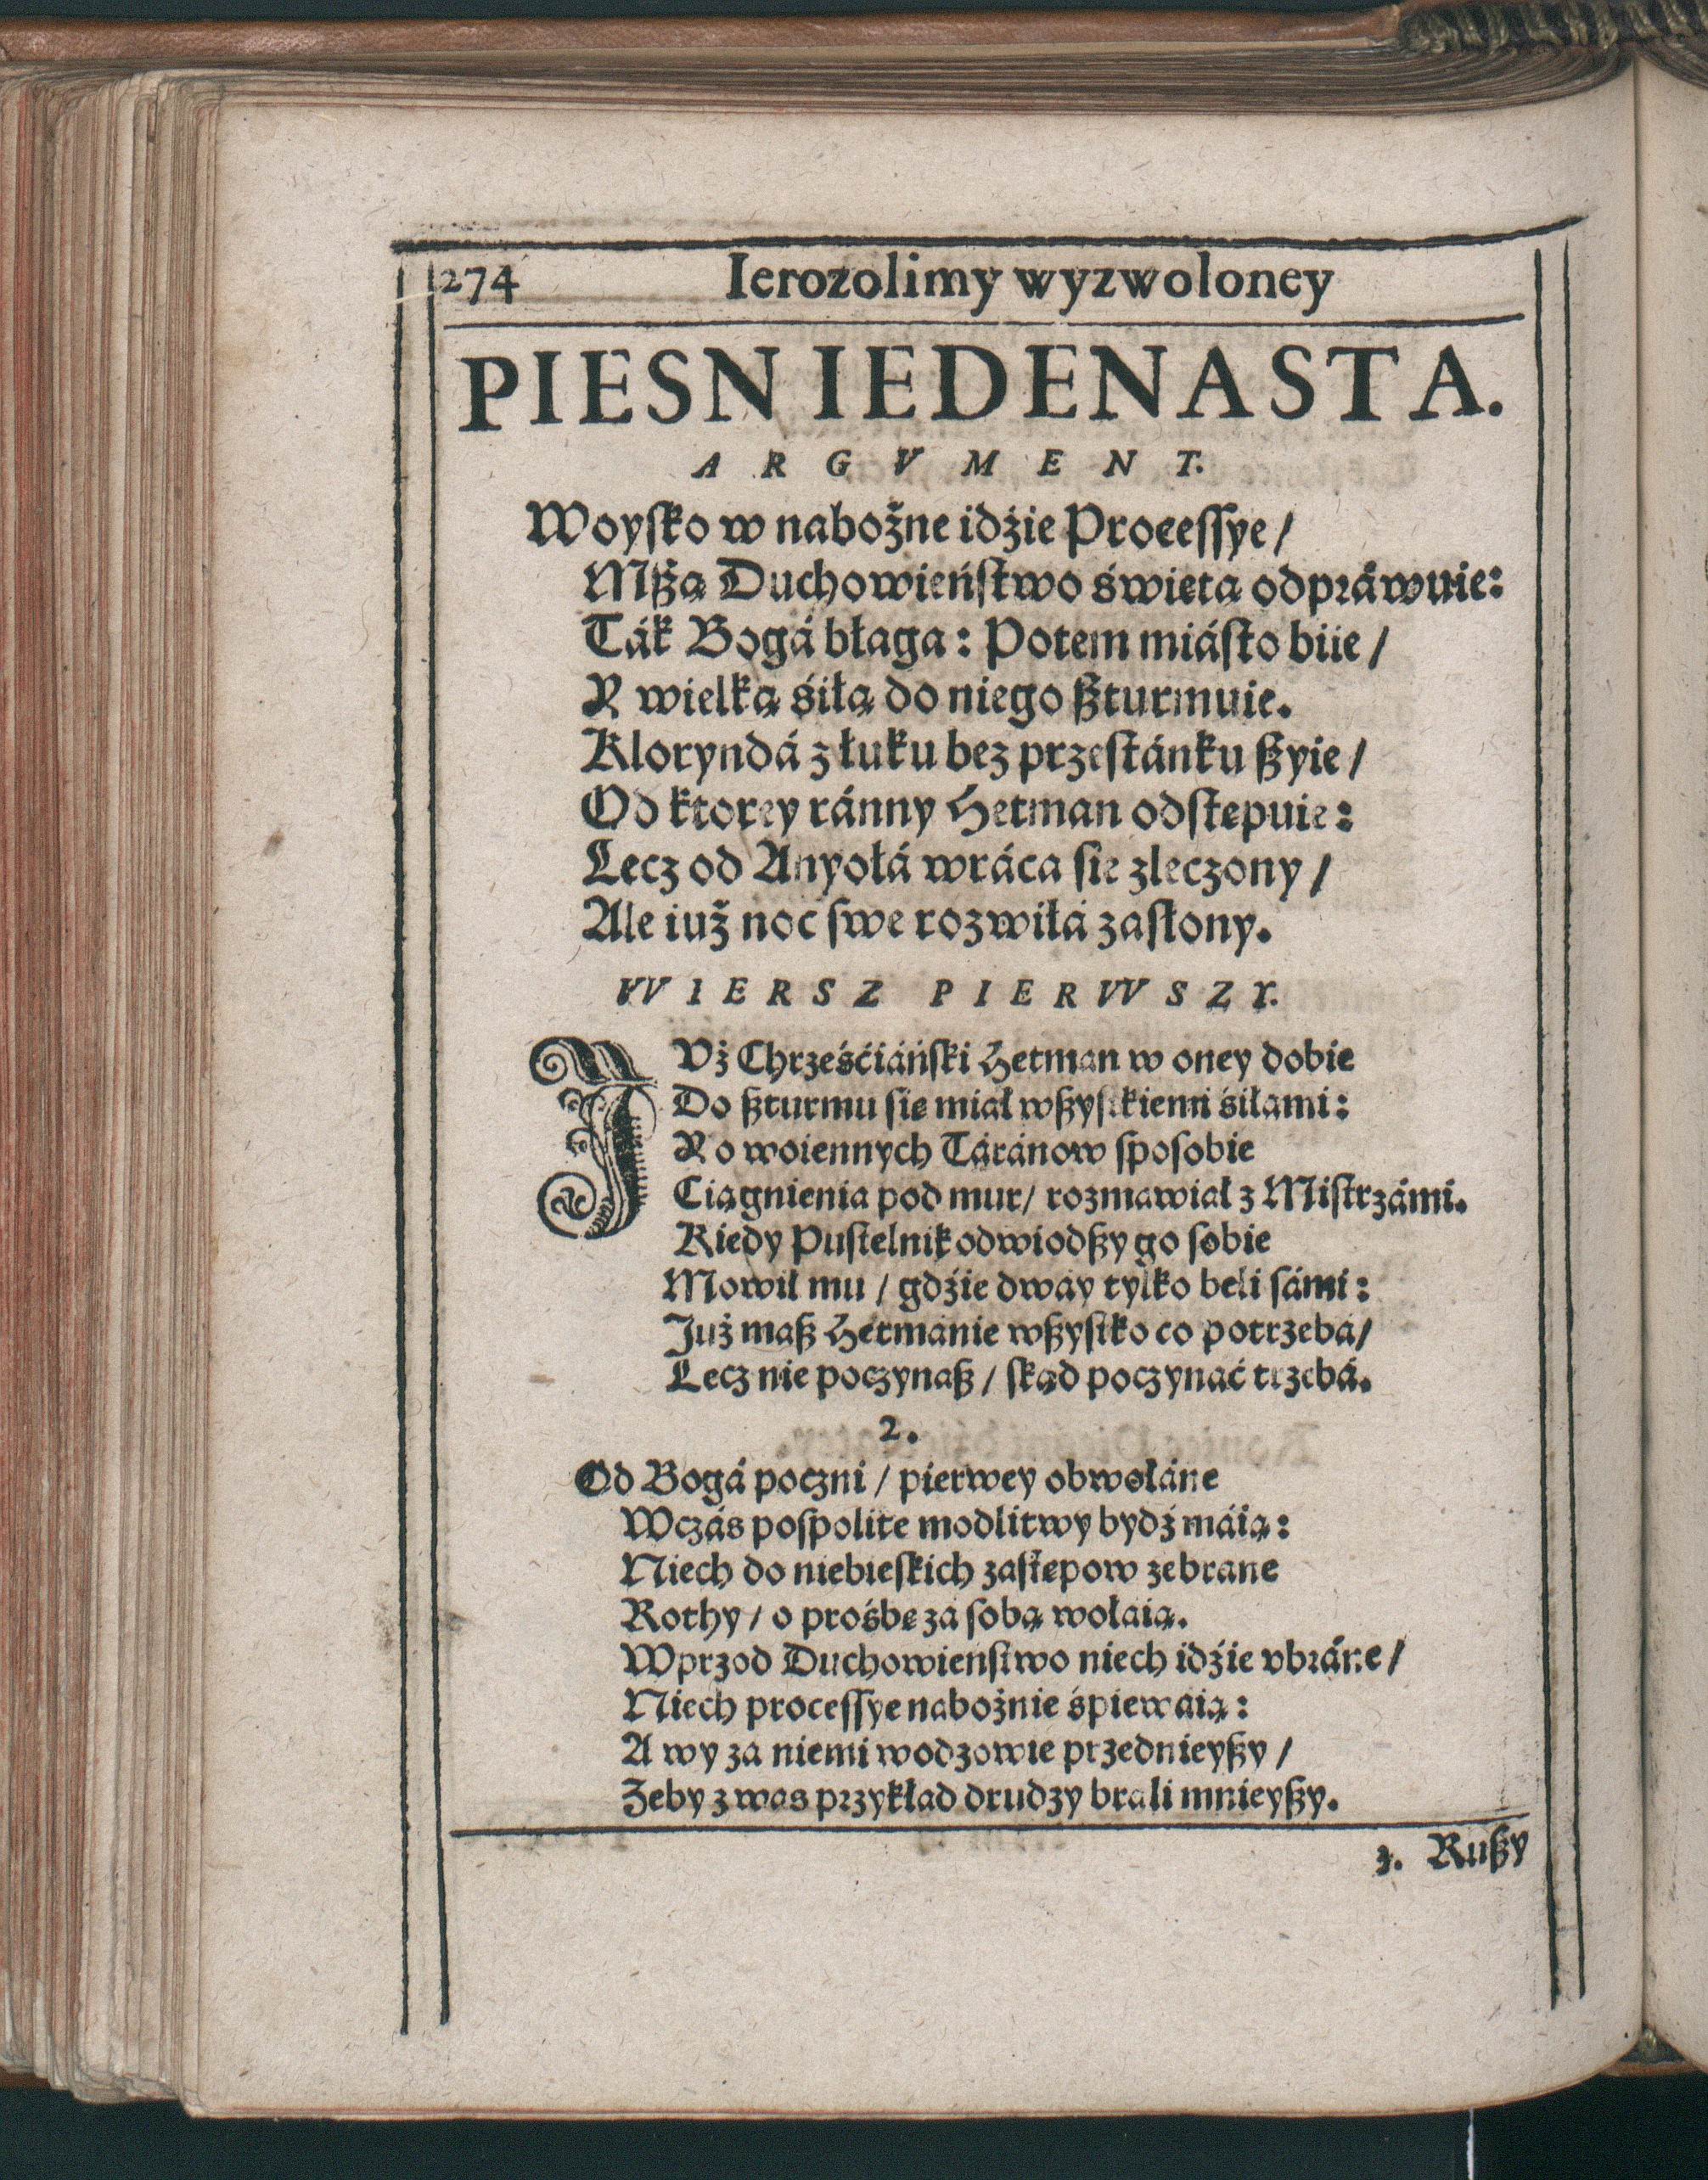 274 Ierozolimy wyzwoloney
PIESN IEDENASTA.
ARGVMENT.
Woyſko w nabożne idźie Proceſſye /
Mßą Duchowieńſtwo święta odpráwuie:
Ták Bogá błaga: Potem miáſto biie /
Y wielką śiłą do niego ßturmuie.
Kloryndá z łuku bez przeſtánku ßyie /
Od ktorey ránny Hetman odſtępuie:
Lecz od Anyołá wráca ſie zleczony /
Ale iuż noc ſwe rozwiłá zaſłony.
WIERSZ PIERWSZY.
IVż Chrześćiáńſki Hetman w oney dobie
Do ßturmu ſię miał wßyſtkiemi śiłami:
Y o woiennych Táránow ſpoſobie
Ciągnienia pod mur / rozmawiał z Miſtrzámi.
Kiedy Puſtelnik odwiodßy go ſobie
Mowił mu / gdźie dwáy tylko beli ſámi:
Już maß Hetmánie wßyſtko co potrzebá /
Lecz nie poczynaß / ſkąd poczynáć trzebá.
2.
Od Bogá poczni / pierwey obwołáne
Wczás poſpolite modlitwy bydź máią:
Niech do niebieſkich zaſtępow zebrane
Rothy / o prośbę zá ſobą wołáią.
Wprzod Duchowienſtwo niech idźie vbráne /
Niech proceſſye nabożnie śpiewáią:
A wy za niemi wodzowie przednieyßy /
Żeby z was przykład drudzy brali mnieyßy.
3. Rußy